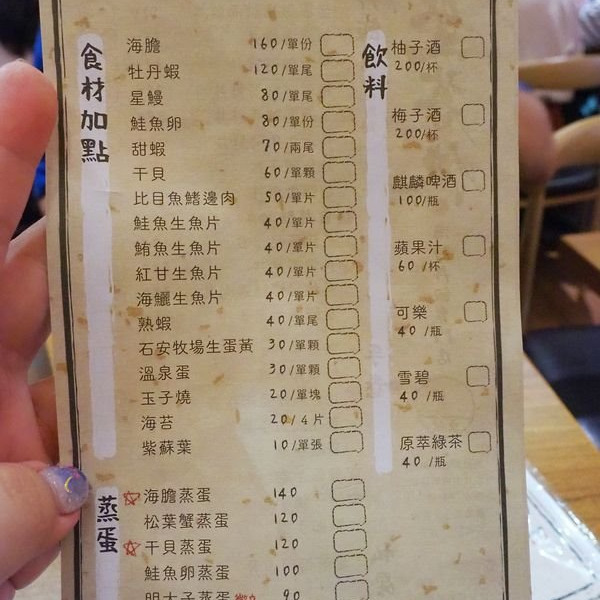 食材加點
海膽 160/單份
牡丹蝦 120/單尾
星鰻 80/單尾
鮭魚卵 80/單份
甜蝦 70/兩尾
干貝 60/單顆
比目魚鰭邊肉 50/單片
鮭魚生魚片 40/單片
鮪魚生魚片 40/單片
紅甘生魚片 40/單片
海鱺生魚片 40/單片
熟蝦 40/單尾
石安牧場生蛋黃 30/單顆
溫泉蛋 30/單顆
玉子燒 20/單塊
海苔 20/4片
紫蘇葉 10/單張
蒸蛋
海膽蒸蛋 140
松葉蟹蒸蛋 120
干貝蒸蛋 120
鮭魚卵蒸蛋 100
明太子蒸蛋 90
飲料
柚子酒
200/杯
梅子酒
200/杯
麒麟啤酒
100/瓶
蘋果汁
60/杯
可樂
40/瓶
雪碧
40/瓶
原萃綠茶
40/瓶